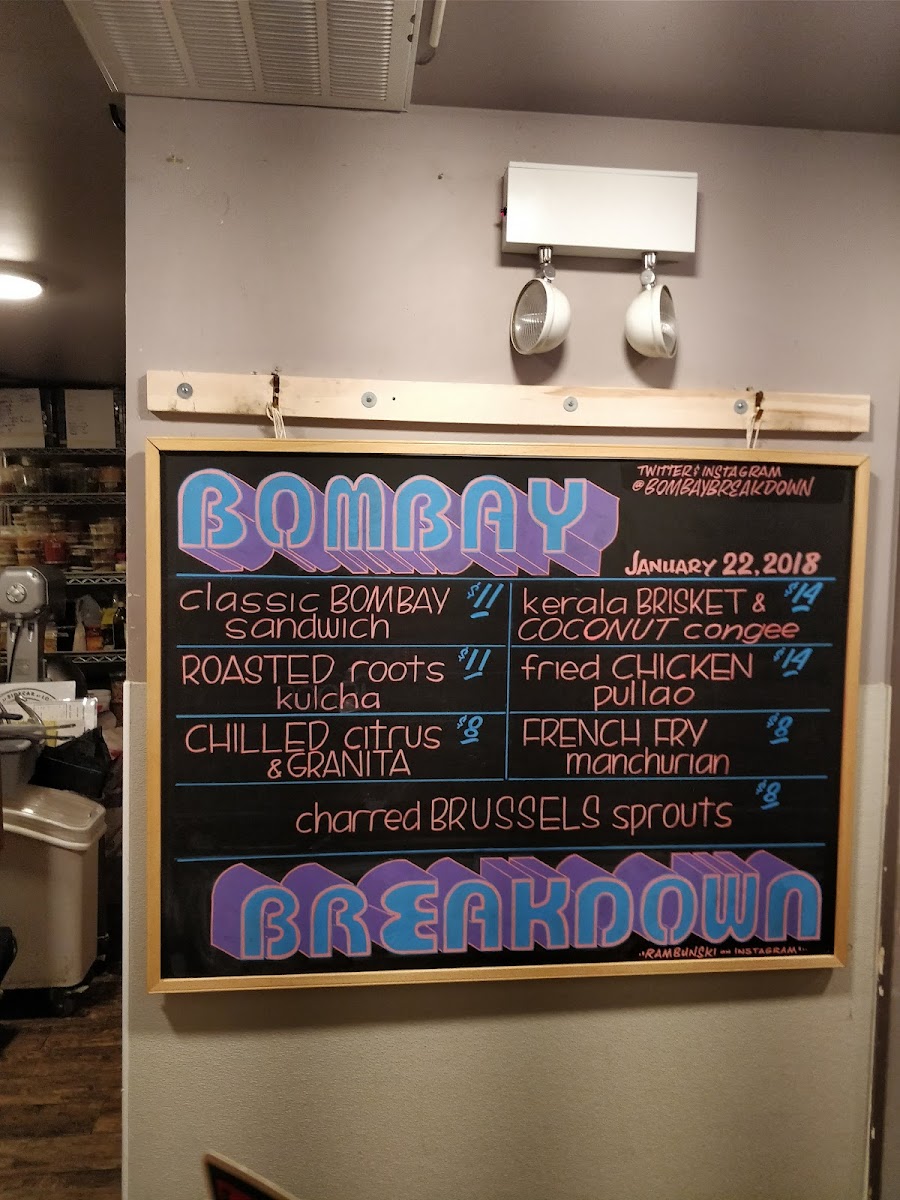 BOMBAY
TWITTER & INSTAGRAM
@BOMBAYBREAKDOWN
JANUARY 22, 2018
classic BOMBAY $11
sandwich
kerala BRISKET & $14
COCONUT congee
ROASTED roots $11
kulcha
fried CHICKEN $14
pullao
CHILLED citrus $8
& GRANITA
FRENCH FRY $8
manchurian
charred BRUSSELS sprouts $8
BREAKDOWN
RAMBUNSKI on INSTAGRAM